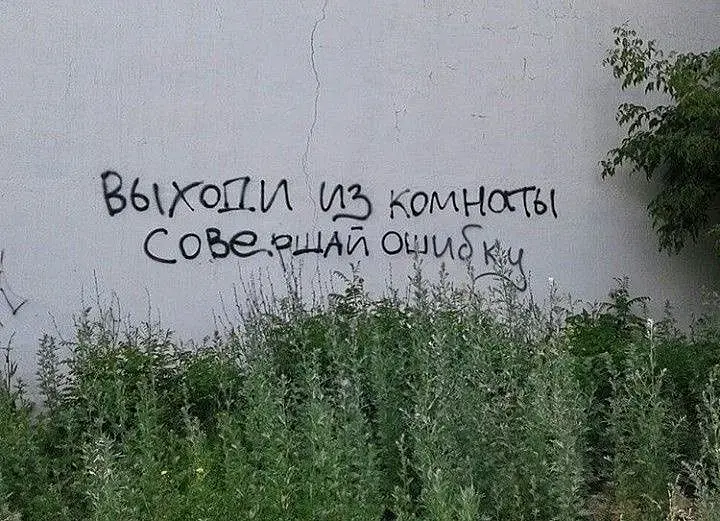 Выходи из комнаты
Совершай ошибку